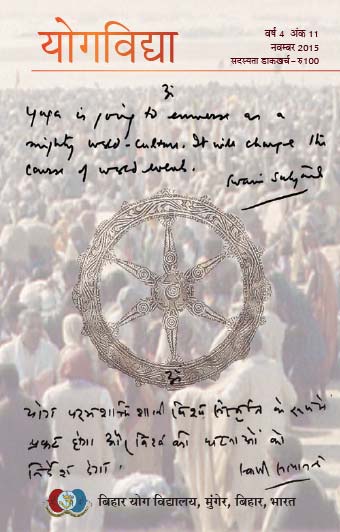 योगविद्या
वर्ष 4 अंक 11
नवम्बर 2015
सदस्यता डाकखर्च – रु100
ॐ
Yoga is going to emerge as a
mighty world-culture. It will change the
course of world events.
Swami Satyananda
ॐ
योग परमशक्तिशाली विश्व संस्कृति के रूप में
प्रकट होगा और विश्व की घटनाओं को
निर्देश देगा।
बिहार योग विद्यालय, मुंगेर, बिहार, भारत